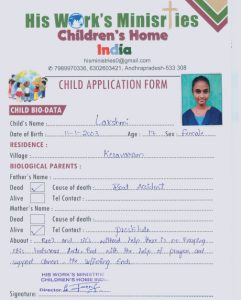 His Work's Ministries
Children's Home
India
hisministries0@gmail.com
7989970336, 6302603421, Andhrapradesh-533 308
CHILD APPLICATION FORM
CHILD BIO-DATA
Child's Name : Lakshmi
Date of Birth : 11-1-2003 Age : 17 Sex : Female
RESIDENCE :
Village : Kesavaram
BIOLOGICAL PARENTS :
Father's Name :
Dead ✓ Cause of death : Road Accident
Alive Tel Contact :
Mother's Name :
Dead Cause of death :
Alive ✓ Tel Contact : Prostitute
About : and without help there is no
this with the help of program and
support the suffering
HIS WORK'S MINISTRIE
CHILDREN'S HOME IND
Director
Signature